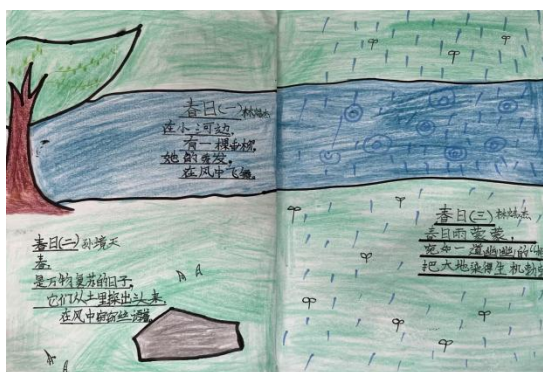 春日(一)
在小河边,
有一棵垂柳,
她的秀发,
在风中飞舞。
春日(二)
春,
是万物复苏的日子,
它们从土里探出头来,
在风中
春日(三)
春日雨蒙蒙,
宛如一道幽幽的"
把大地染得生机勃